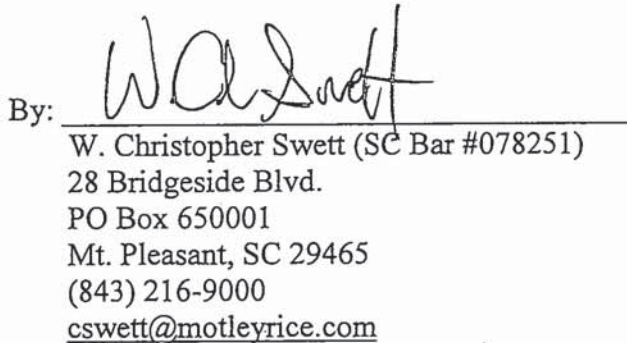 By: W Ch Swett
W. Christopher Swett (SC Bar #078251)
28 Bridgeside Blvd.
PO Box 650001
Mt. Pleasant, SC 29465
(843) 216-9000
cswett@motleyrice.com